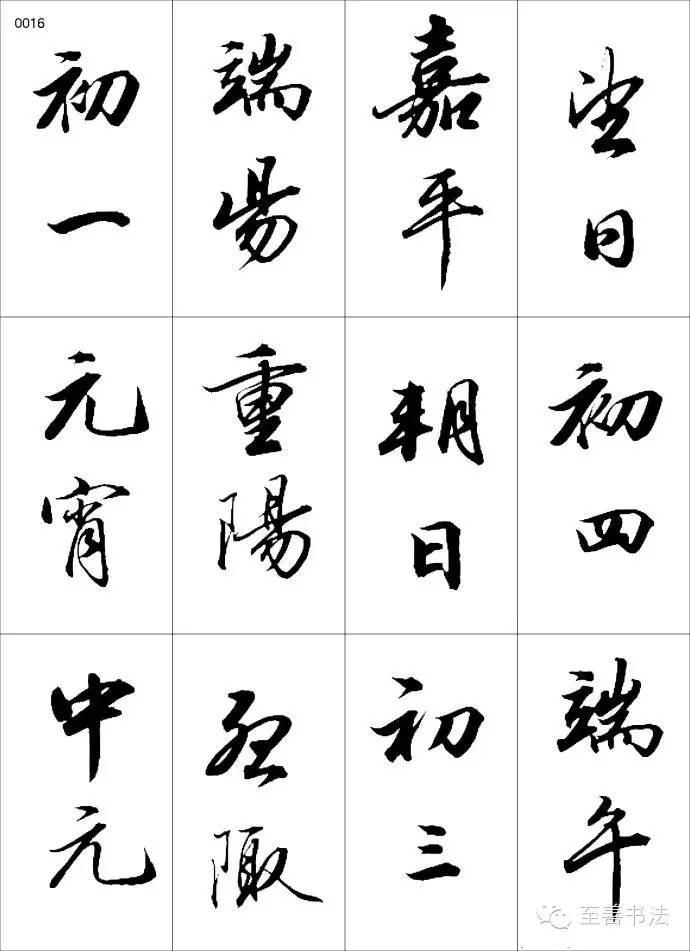 0016
初一
端陽
嘉平
望日
元宵
重陽
朔日
初四
中元
孟陬
初三
端午
至善书法